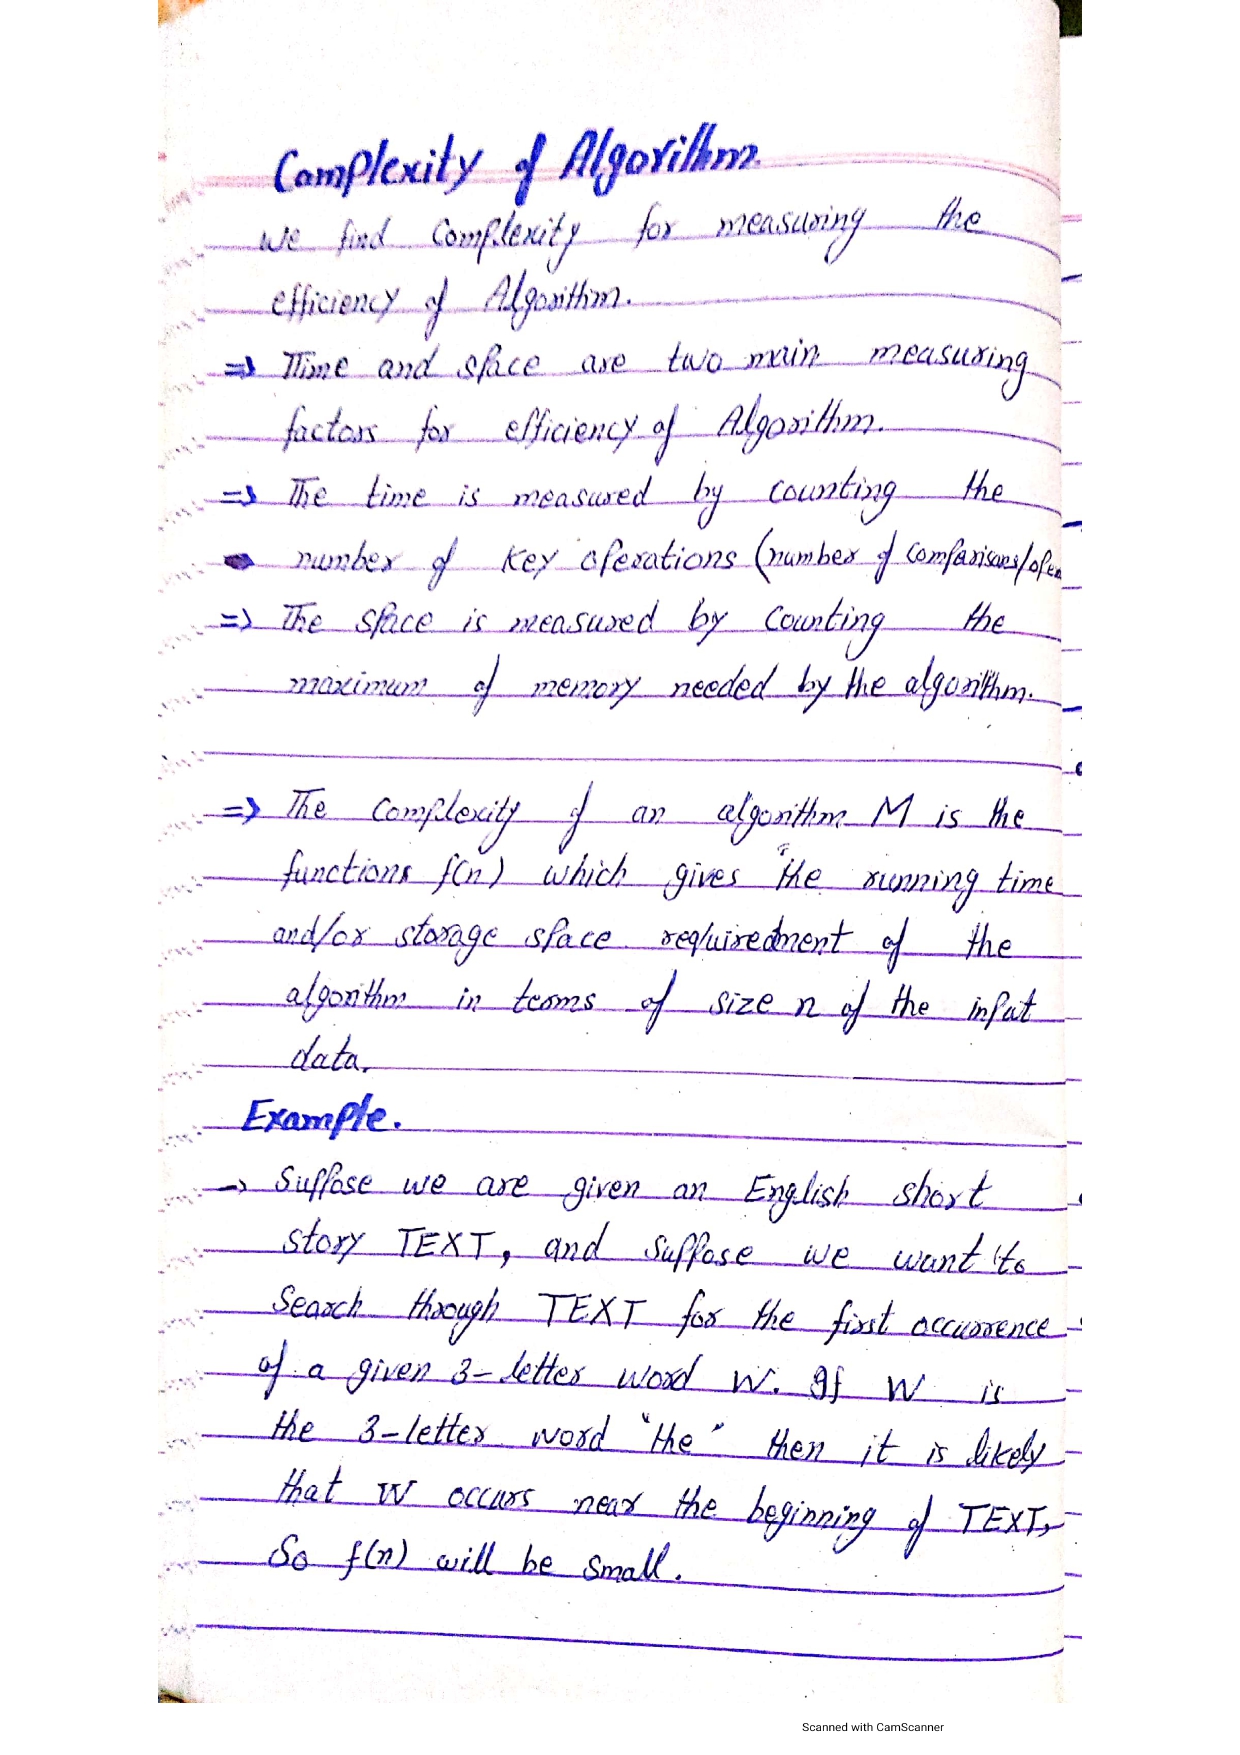 Complexity of Algorithm.
we find Complexity for measuring the
efficiency of Algorithm.
=> Time and space are two main measuring
factors for efficiency of Algorithm.
=> The time is measured by counting the
number of key operations (number of Comparisons/oper
=> The space is measured by Counting the
maximum of memory needed by the algorithm.
=> The Complexity of an algorithm M is the
functions f(n) which gives the running time
and/or storage space requirement of the
algorithm in terms of size n of the input
data.
Example.
→ Suppose we are given an English short
story TEXT, and suppose we want to
Search through TEXT for the first occurrence
of a given 3-letter word W. If W is
the 3-letter word "the" then it is likely
that W occurs near the beginning of TEXT,
So f(n) will be small.
Scanned with CamScanner